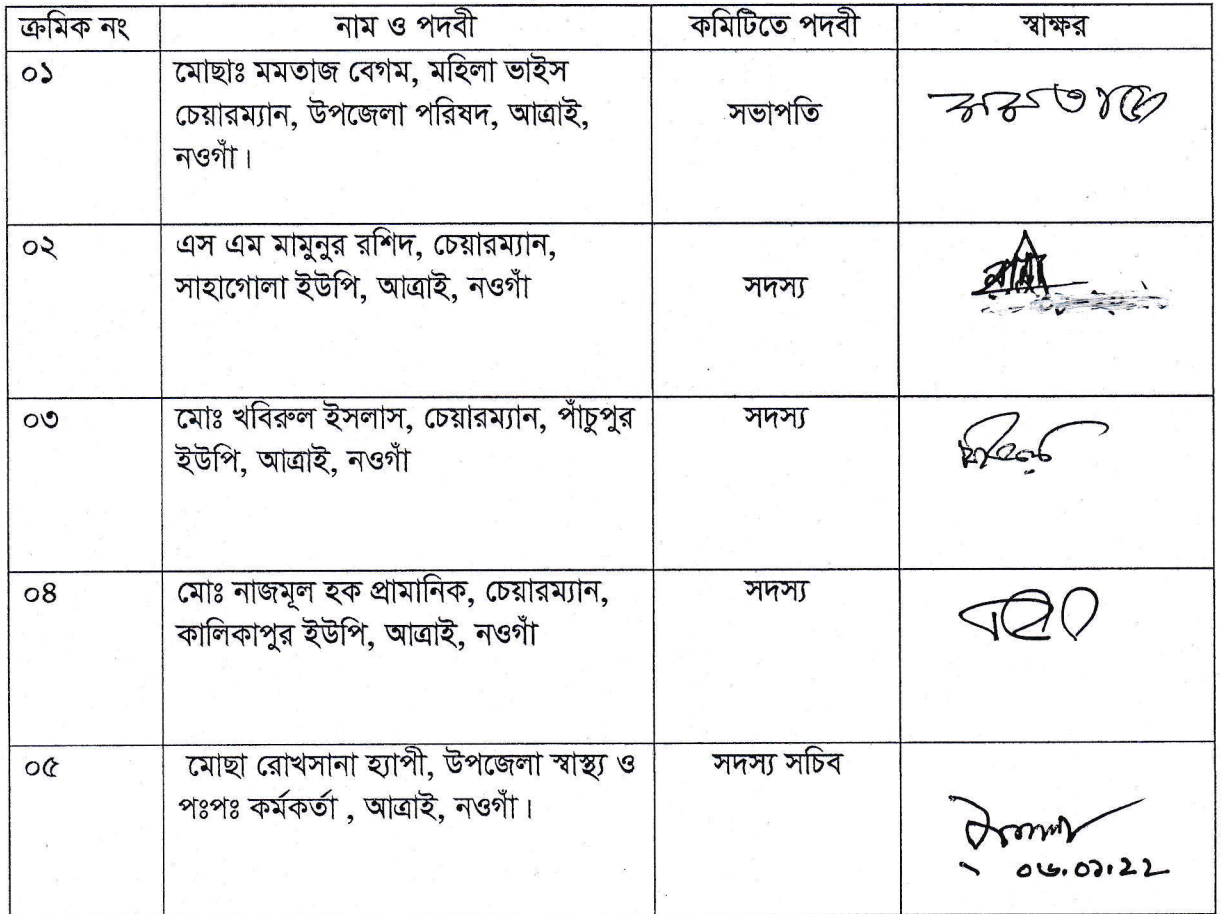 ক্রমিক নং নাম ও পদবী কমিটিতে পদবী স্বাক্ষর
০১ মোছাঃ মমতাজ বেগম, মহিলা ভাইস
চেয়ারম্যান, উপজেলা পরিষদ, আত্রাই, সভাপতি
নওগাঁ।
০২ এস এম মামুনুর রশিদ, চেয়ারম্যান,
সাহাগোলা ইউপি, আত্রাই, নওগাঁ সদস্য
০৩ মোঃ খবিরুল ইসলাস, চেয়ারম্যান, পাঁচুপুর সদস্য
ইউপি, আত্রাই, নওগাঁ
০৪ মোঃ নাজমূল হক প্রামানিক, চেয়ারম্যান, সদস্য
কালিকাপুর ইউপি, আত্রাই, নওগাঁ
০৫ মোছা রোখসানা হ্যাপী, উপজেলা স্বাস্থ্য ও সদস্য সচিব
পঃপঃ কর্মকর্তা , আত্রাই, নওগাঁ।